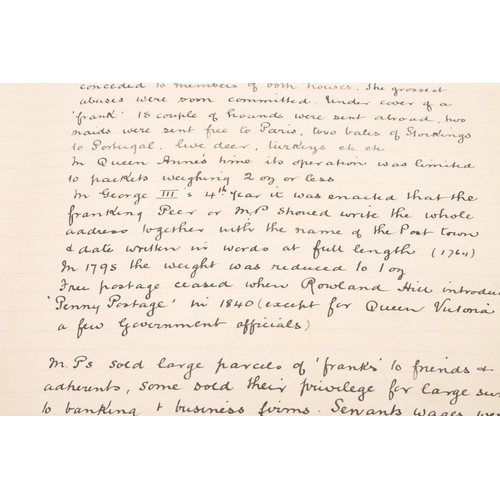 conceded to members of both houses. The grossest
abuses were soon committed. Under cover of a
'frank' 15 couple of hounds were sent abroad, two
maids were sent free to Paris, two bales of Stockings
to Portugal, live deer, turkeys etc etc
In Queen Anne's time its operation was limited
to packets weighing 2 oz or less
In George III's 4th year it was enacted that the
franking Peer or M.P should write the whole
address together with the name of the Post town
& date written in words at full length (1764)
In 1795 the weight was reduced to 1 oz
Free postage ceased when Rowland Hill introduc
'Penny Postage' in 1840 (except for Queen Victoria
a few Government officials)
M.Ps sold large parcels of 'franks' to friends &
adherents, some sold their privilege for large sum
to banking & business firms. Servants wages wer